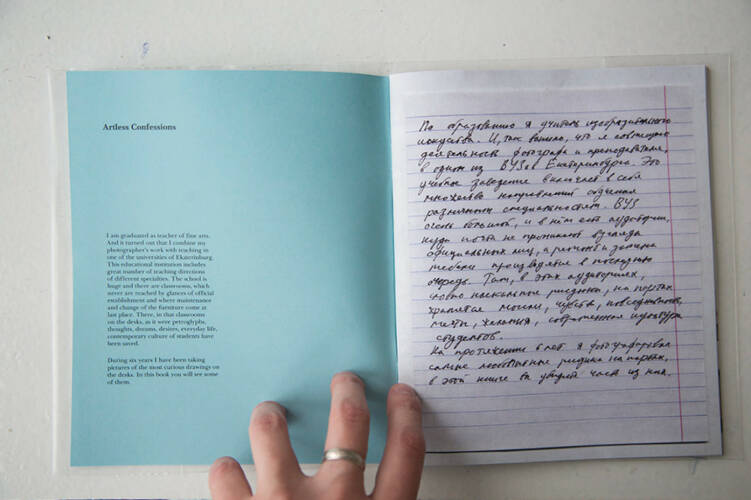 Artless Confessions
I am graduated as teacher of fine arts.
And it turned out that I combine my
photographer's work with teaching in
one of the universities of Ekaterinburg.
This educational institution includes
great number of teaching directions
of different specialties. The school is
huge and there are classrooms, which
never are reached by glances of official
establishment and where maintenance
and change of the furniture come at
last place. There, in that classrooms
on the desks, as it were petroglyphs,
thoughts, dreams, desires, everyday life,
contemporary culture of students have
been saved.
During six years I have been taking
pictures of the most curious drawings on
the desks. In this book you will see some
of them.
По образованию я учитель изобразительного
искусства. И, так вышло, что я совмещаю
деятельность фотографа и преподавателя,
в одном из ВУЗов Екатеринбурга. Это
учебное заведение включает в себя
множество направлений обучения
различным специальностям. ВУЗ
очень большой, и в нём есть аудитории,
куда почти не проникают взгляды
официальных лиц, а ремонт и замена
мебели производятся в последнюю
очередь. Там, в этих аудиториях,
словно наскальные рисунки, на партах
хранятся мысли, чувства, повседневность,
мечты, желания, современная культура
студентов.
На протяжении 6 лет я фотографировал
самые любопытные рисунки на партах,
в этой книге вы увидите часть из них.